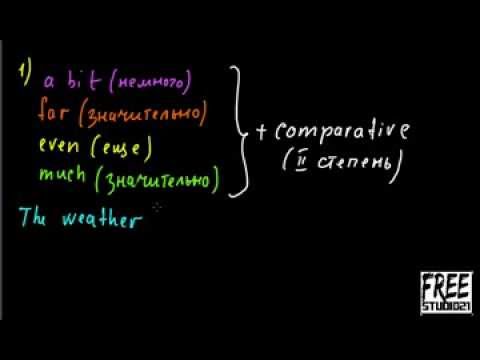 1) a bit (немного)
far (значительно)
even (еще)
much (значительно)
+ comparative
(II степень)
The weather
FREE
STUDIO21